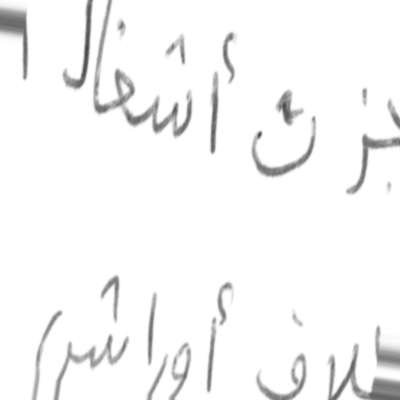 جزت أشغال ا
لاف أوراش